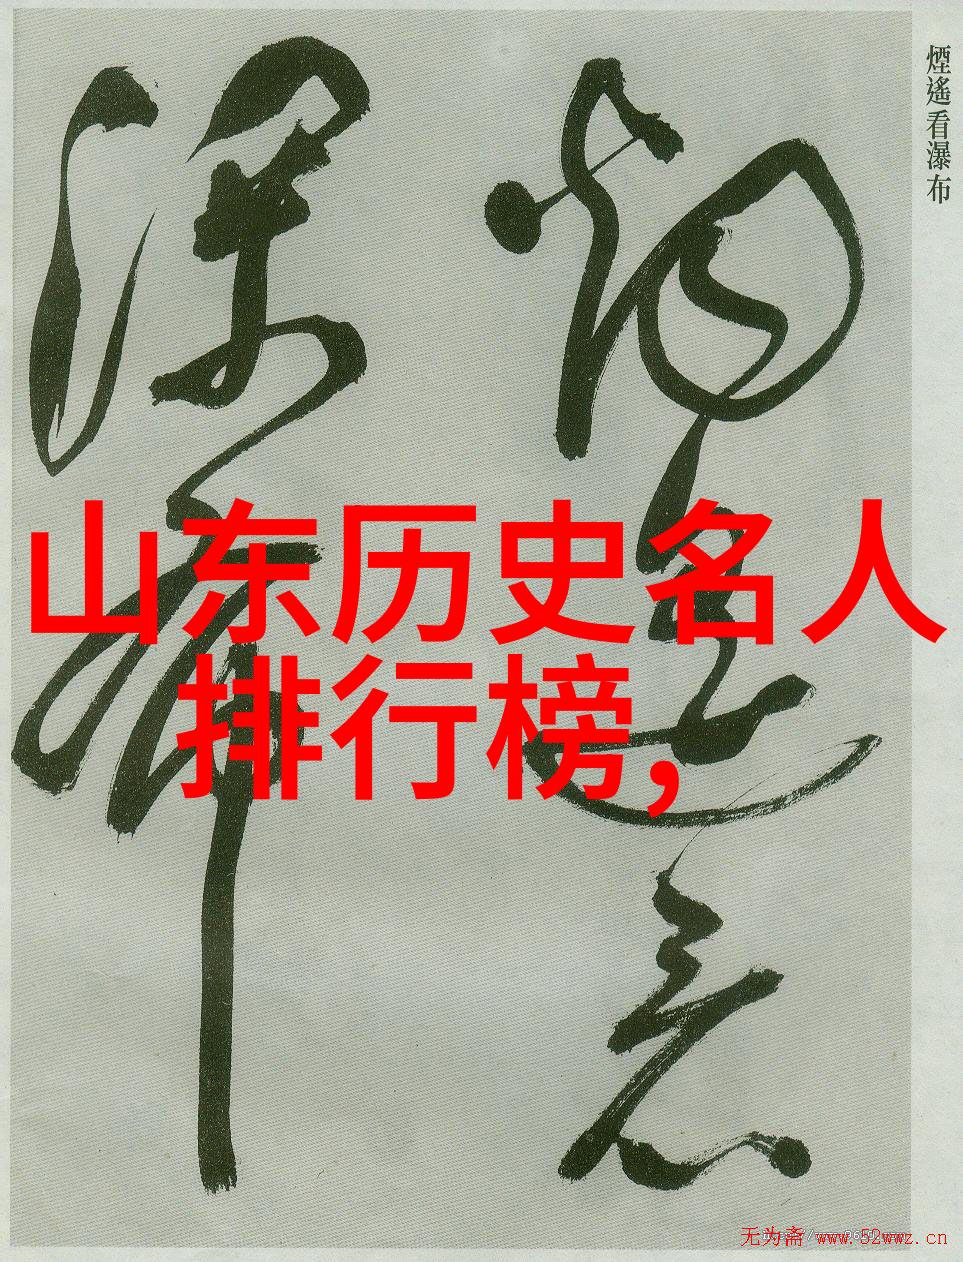 煙遙看瀑布
煙遙看
瀑布
山东历史名人
排行榜,
无为斋 www.52wwz.cn